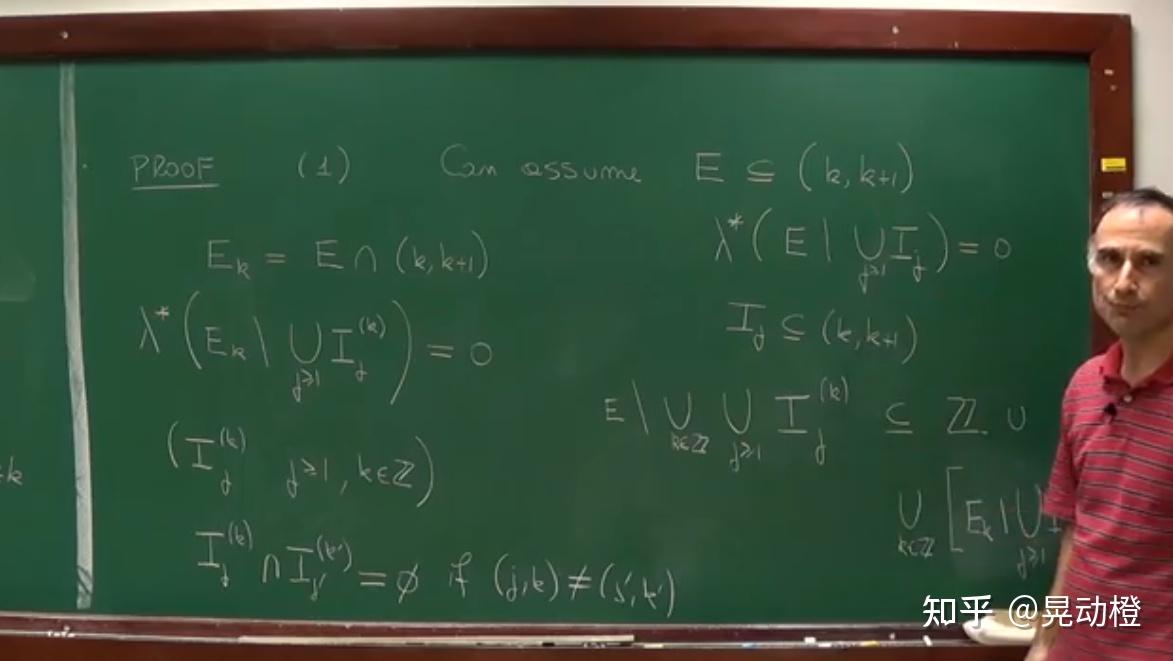 PROOF (1) Can assume E ⊆ (k, k+1)
E_k = E ∩ (k, k+1)
λ*(E_k \ ⋃_{j≥1} I_j^{(k)}) = 0
(I_j^{(k)} j≥1, k∈ℤ)
I_j^{(k)} ∩ I_{j'}^{(k')} = ∅ if (j,k) ≠ (j',k')
λ*(E \ ⋃_{j≥1} I_j) = 0
I_j ⊆ (k, k+1)
E \ ⋃_{k∈ℤ} ⋃_{j≥1} I_j^{(k)} ⊆ ℤ ∪
⋃_{k∈ℤ} [E_k \ ⋃_{j≥1} I
k
知乎 @晃动橙